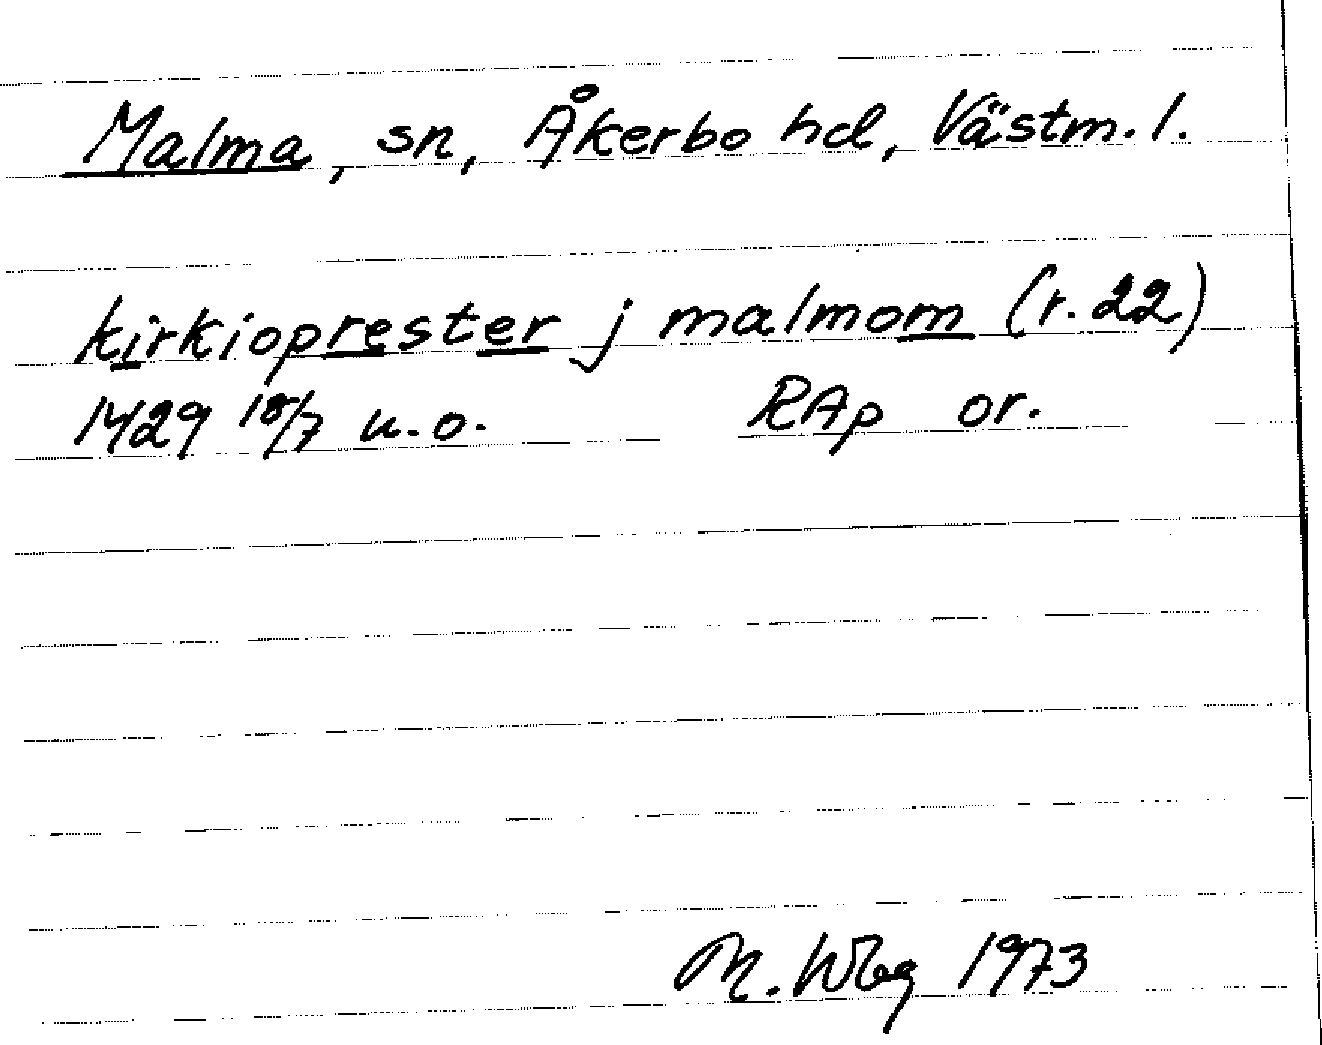 Malma, sn, Åkerbo hd, Västm. l.
kirkioprester j malmom (r. 22)
1429 18/7 u.o. RAp or.
M. Wbg 1973